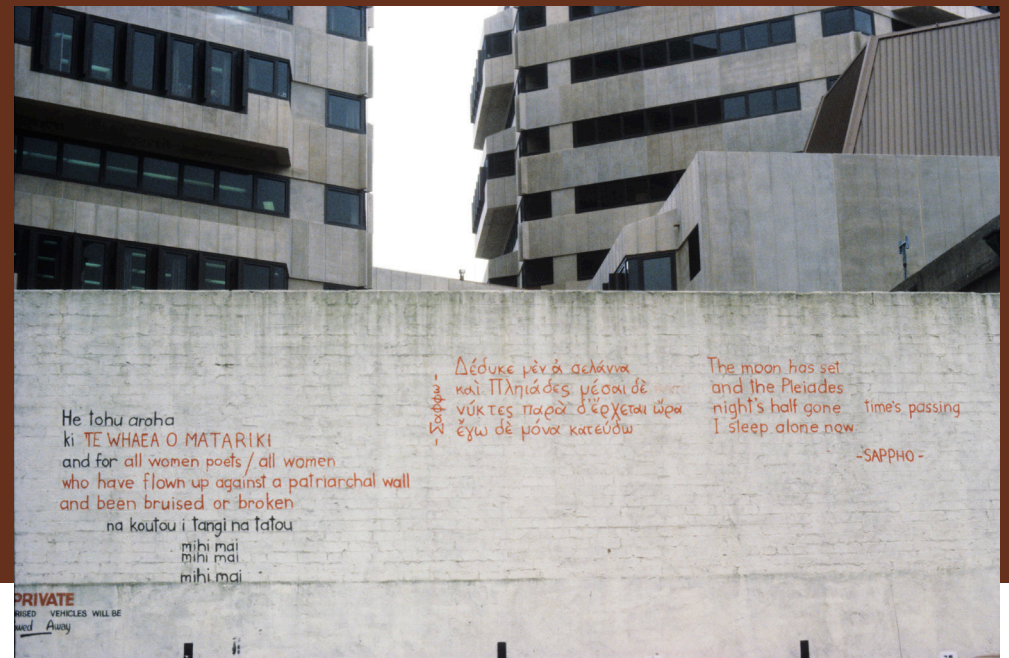 He tohu aroha
ki TE WHAEA O MATARIKI
and for all women poets / all women
who have flown up against a patriarchal wall
and been bruised or broken
na koutou i tangi na tatou
mihi mai
mihi mai
mihi mai
Δέδυκε μὲν ἀ σελάννα
καὶ Πληιάδες μέσαι δὲ
νύκτες παρὰ δ'ἔρχεται ὤρα
ἔγω δὲ μόνα κατεύδω
-Σαπφω-
The moon has set
and the Pleiades
night's half gone time's passing
I sleep alone now
-SAPPHO-
PRIVATE
RISED VEHICLES WILL BE
wed Away